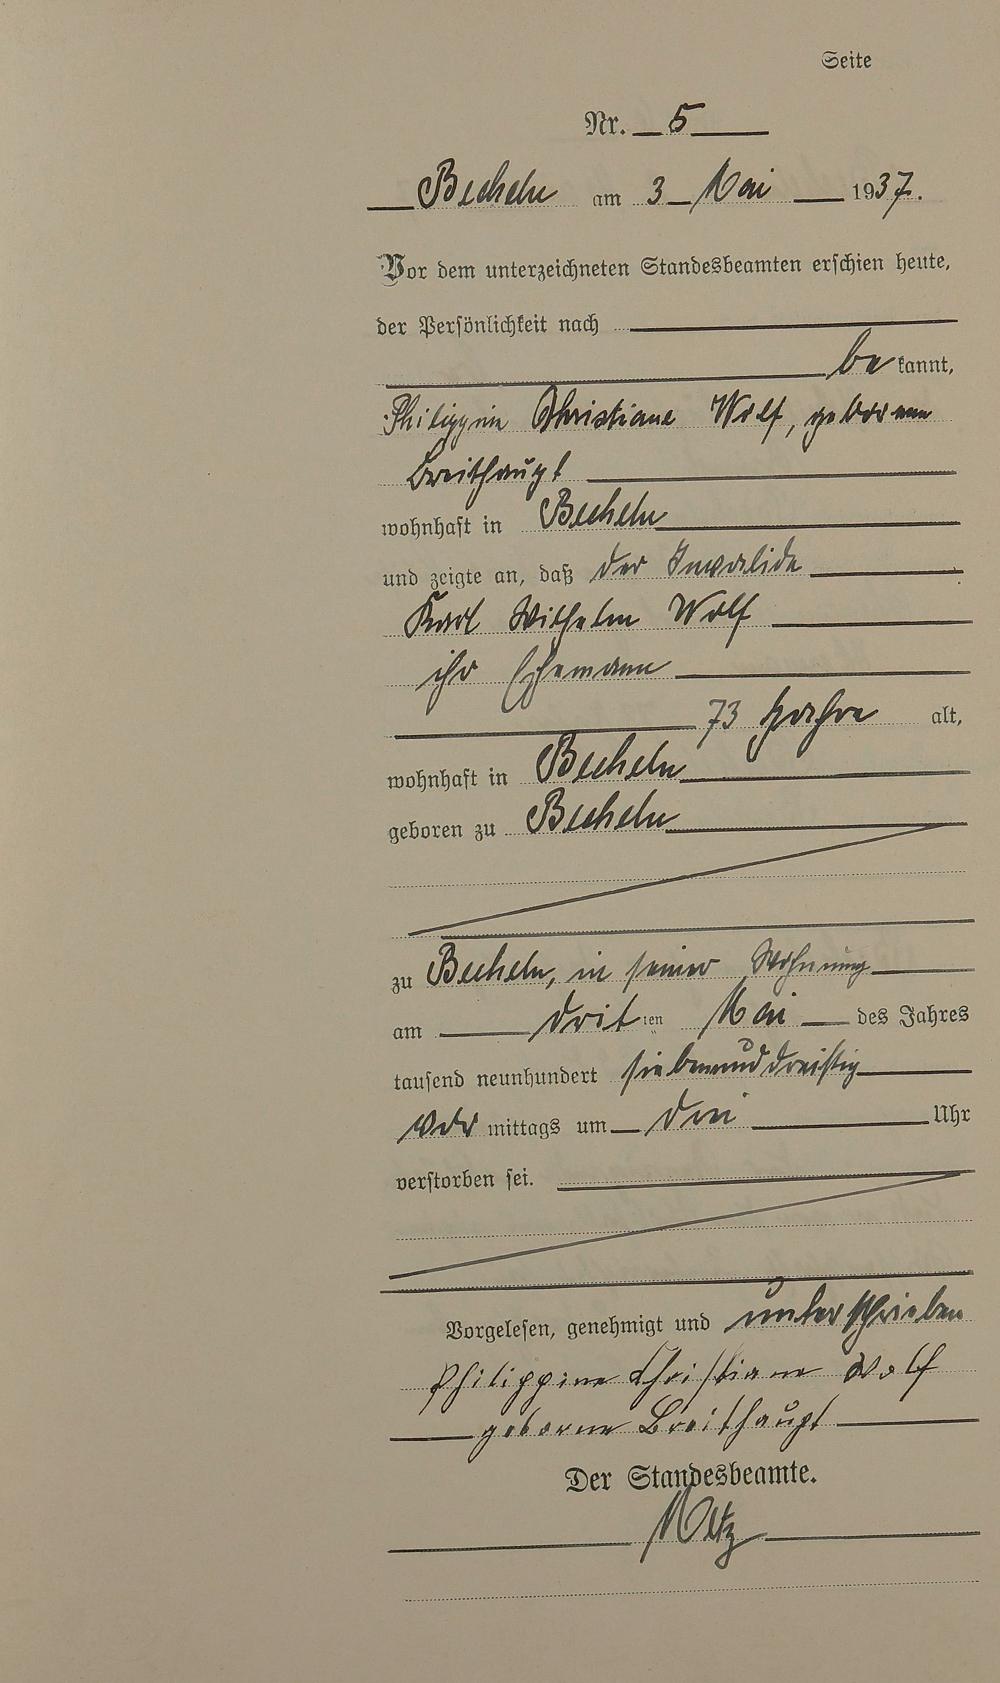 Seite
Nr. 5
Becheln am 3 Mai 1937.
Vor dem unterzeichneten Standesbeamten erschien heute,
der Persönlichkeit nach
bekannt,
Philippin Christiane Wolf, geborenen
Breithaupt
wohnhaft in Becheln
und zeigte an, daß der Invalide
Karl Wilhelm Wolf
ihr Ehemann
73 Jahre alt,
wohnhaft in Becheln
geboren zu Becheln
zu Becheln, in seiner Wohnung
am dritten Mai des Jahres
tausend neunhundert siebenunddreißig
Vor mittags um drei Uhr
verstorben sei.
Vorgelesen, genehmigt und unterschrieben
Philippine Christiane Wolf
geborne Breithaupt
Der Standesbeamte.
Metz